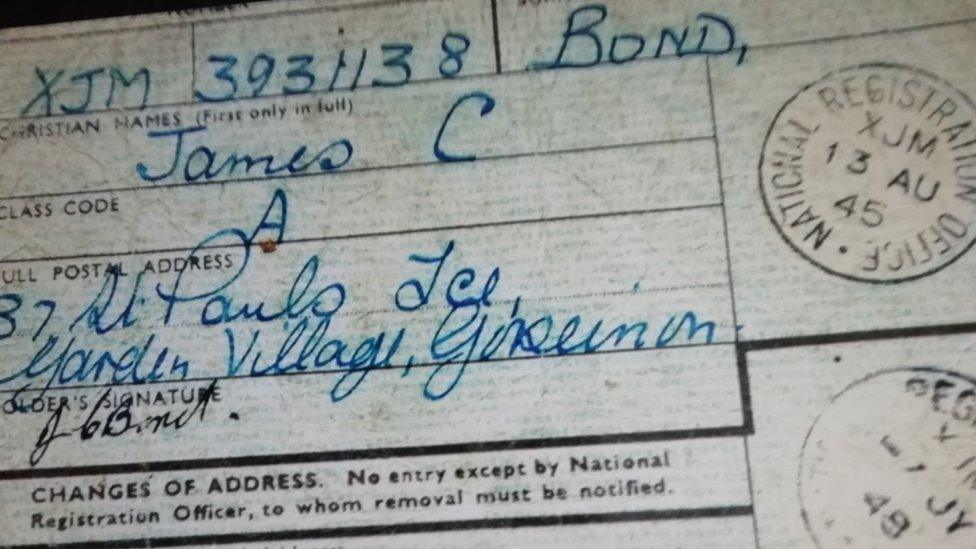 XJM 3931138 BOND,
CHRISTIAN NAMES (First only in full)
James C
CLASS CODE
A
FULL POSTAL ADDRESS
37 St Pauls Tce,
Garden Village, Gorseinon.
HOLDER'S SIGNATURE
J C Bond.
CHANGES OF ADDRESS. No entry except by National
Registration Officer, to whom removal must be notified.
NATIONAL REGISTRATION OFFICE
XJM
13 AU
45